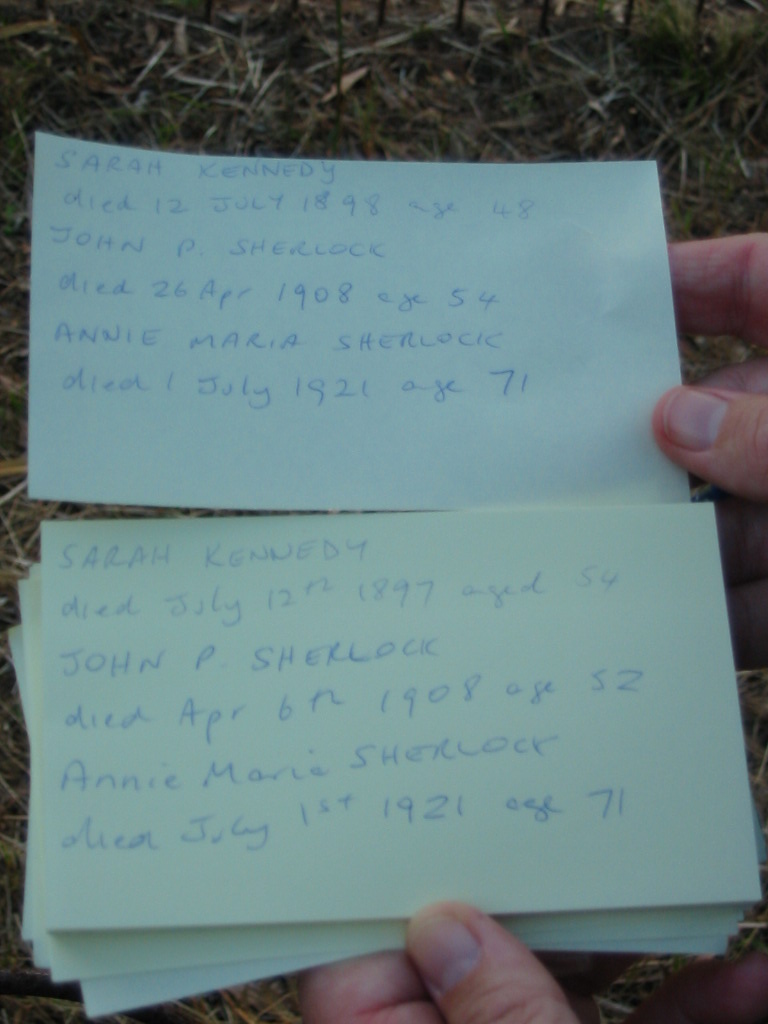 SARAH KENNEDY
died 12 JULY 1898 age 48
JOHN P. SHERLOCK
died 26 Apr 1908 age 54
ANNIE MARIA SHERLOCK
died 1 July 1921 age 71
SARAH KENNEDY
died July 12th 1897 aged 54
JOHN P. SHERLOCK
died Apr 6th 1908 age 52
Annie Maria SHERLOCK
died July 1st 1921 age 71